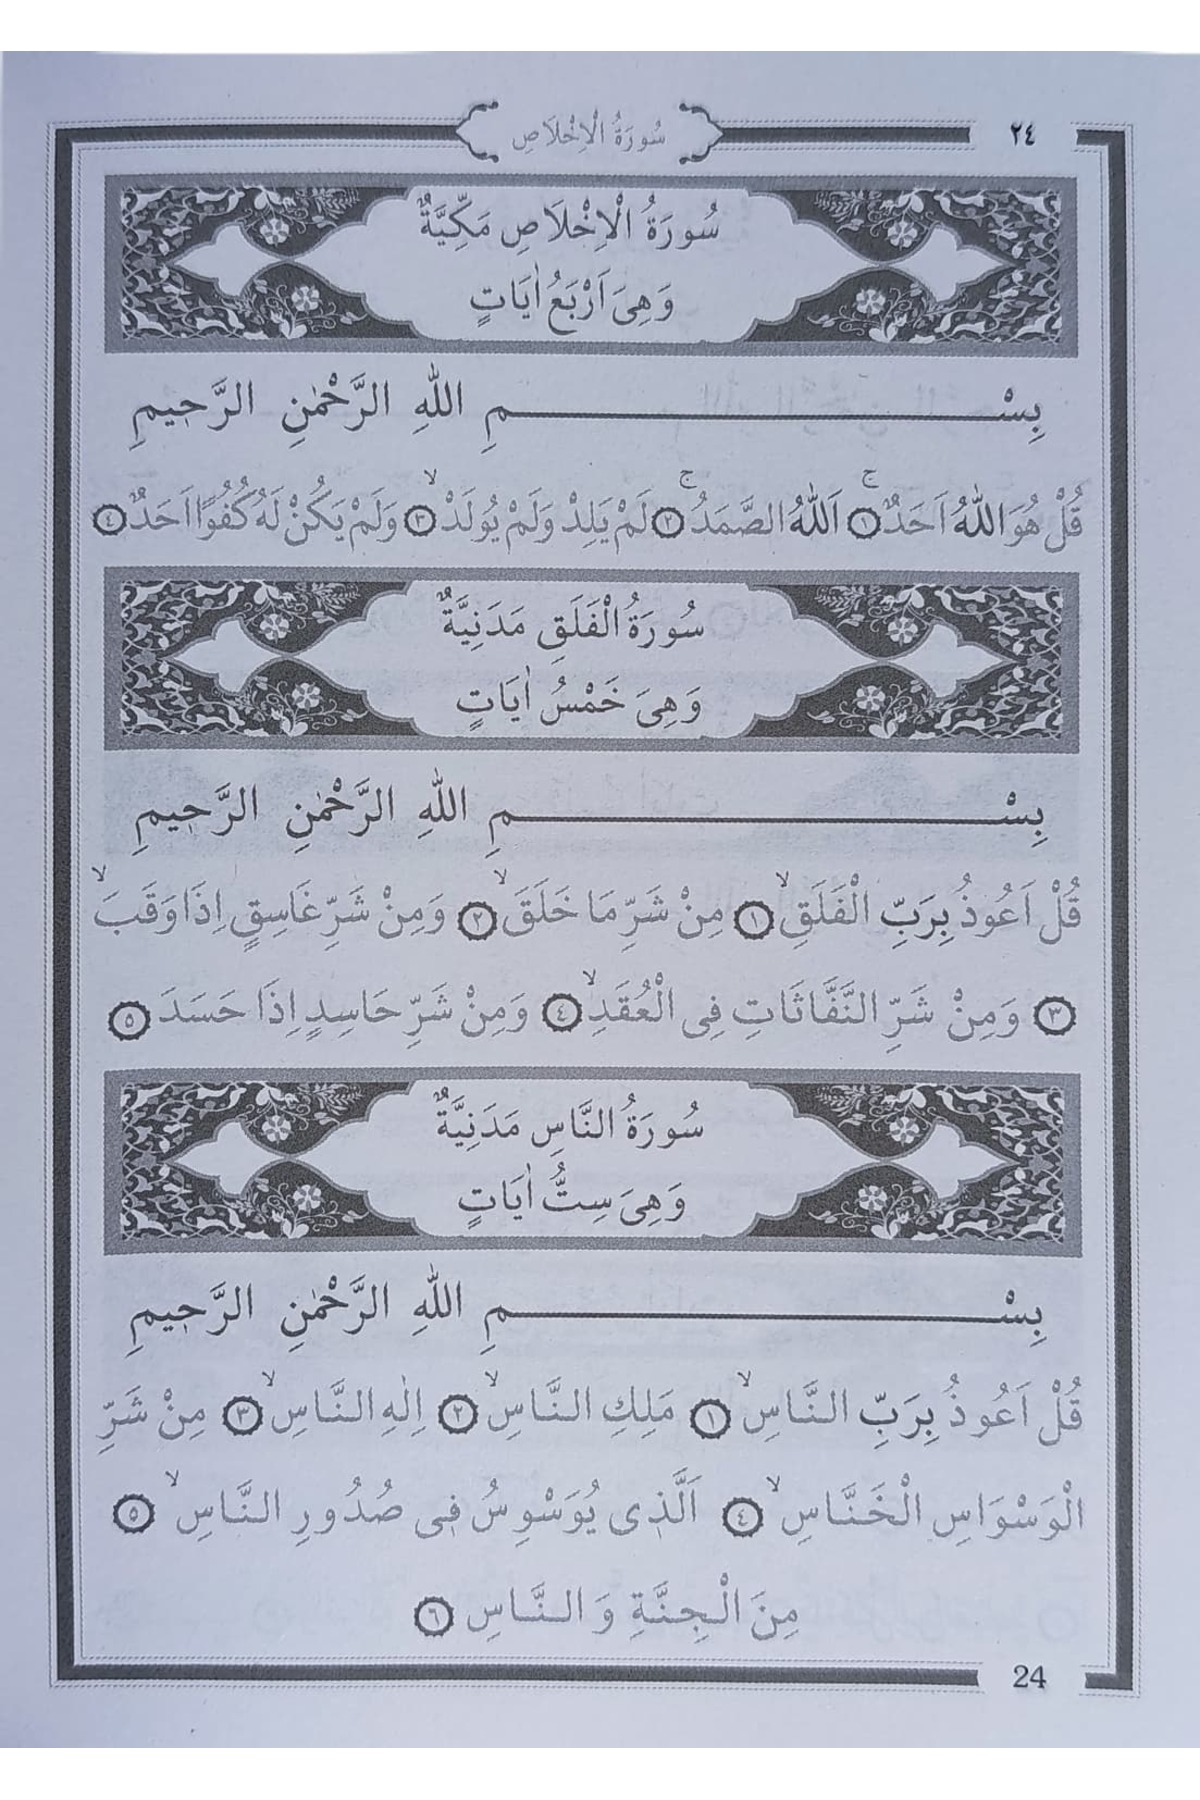 سُورَةُ الْاِخْلَاصِ
٢٤
سُورَةُ الْاِخْلَاصِ مَكِّيَّةٌ
وَهِىَ اَرْبَعُ اٰيَاتٍ
بِسْمِ اللّٰهِ الرَّحْمٰنِ الرَّحِيمِ
قُلْ هُوَ اللّٰهُ اَحَدٌۚ ﴿١﴾ اَللّٰهُ الصَّمَدُۚ ﴿٢﴾ لَمْ يَلِدْ وَلَمْ يُولَدْۙ ﴿٣﴾ وَلَمْ يَكُنْ لَهُ كُفُوًا اَحَدٌ ﴿٤﴾
سُورَةُ الْفَلَقِ مَدَنِيَّةٌ
وَهِىَ خَمْسُ اٰيَاتٍ
بِسْمِ اللّٰهِ الرَّحْمٰنِ الرَّحِيمِ
قُلْ اَعُوذُ بِرَبِّ الْفَلَقِۙ ﴿١﴾ مِنْ شَرِّ مَا خَلَقَۙ ﴿٢﴾ وَمِنْ شَرِّ غَاسِقٍ اِذَا وَقَبَۙ
﴿٣﴾ وَمِنْ شَرِّ النَّفَّاثَاتِ فِى الْعُقَدِۙ ﴿٤﴾ وَمِنْ شَرِّ حَاسِدٍ اِذَا حَسَدَ ﴿٥﴾
سُورَةُ النَّاسِ مَدَنِيَّةٌ
وَهِىَ سِتُّ اٰيَاتٍ
بِسْمِ اللّٰهِ الرَّحْمٰنِ الرَّحِيمِ
قُلْ اَعُوذُ بِرَبِّ النَّاسِۙ ﴿١﴾ مَلِكِ النَّاسِۙ ﴿٢﴾ اِلٰهِ النَّاسِۙ ﴿٣﴾ مِنْ شَرِّ
الْوَسْوَاسِ الْخَنَّاسِۙ ﴿٤﴾ اَلَّذِى يُوَسْوِسُ فِى صُدُورِ النَّاسِۙ ﴿٥﴾
مِنَ الْجِنَّةِ وَ النَّاسِ ﴿٦﴾
24